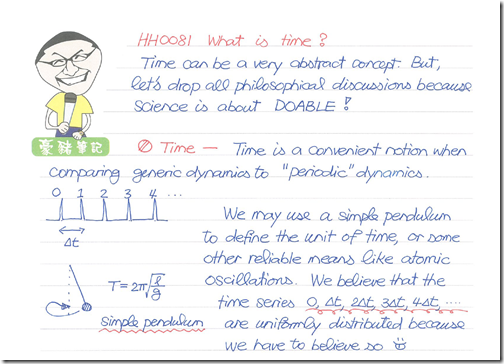 HH0081 What is time?
Time can be a very abstract concept. But,
let's drop all philosophical discussions because
science is about DOABLE!
豪豬筆記
Time — Time is a convenient notion when
comparing generic dynamics to "periodic" dynamics.
0 1 2 3 4 ...
Δt
We may use a simple pendulum
to define the unit of time, or some
other reliable means like atomic
oscillations. We believe that the
time series 0, Δt, 2Δt, 3Δt, 4Δt, ....
are uniformly distributed because
we have to believe so
T = 2π√(l/g)
simple pendulum